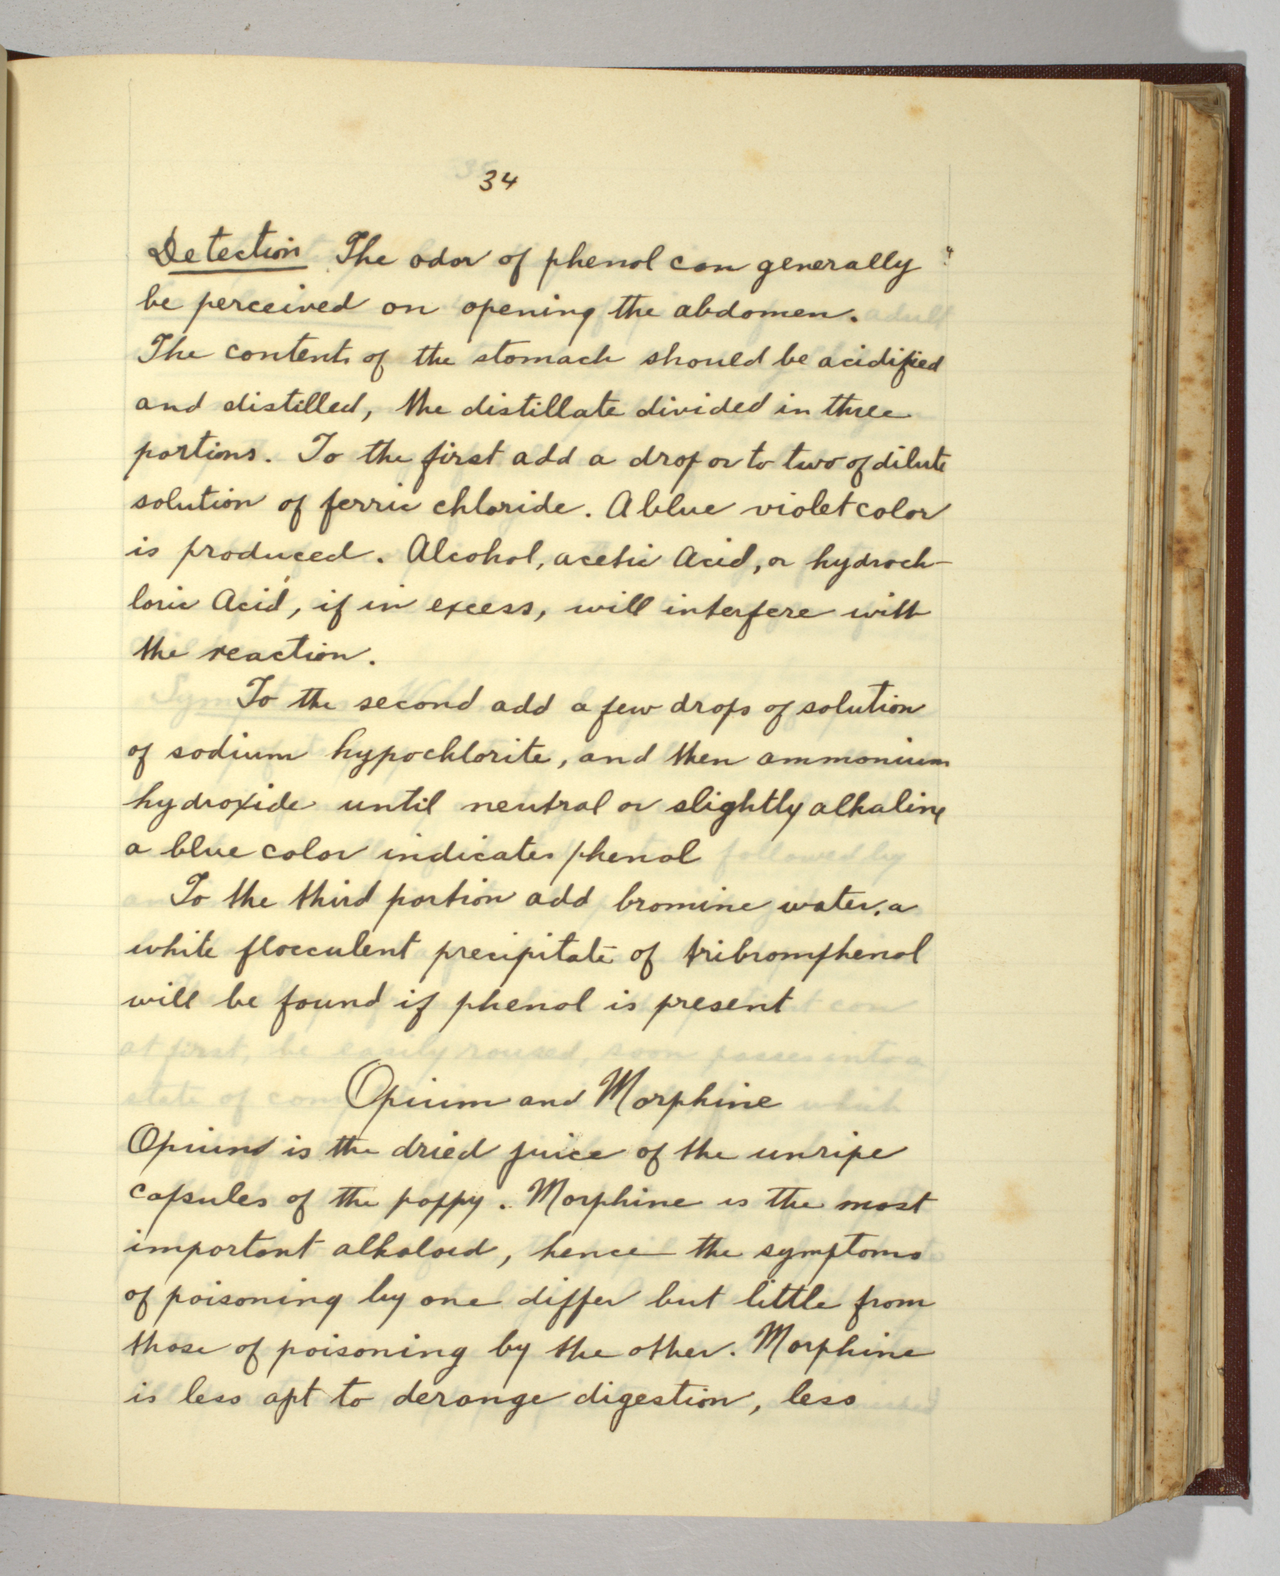 34
Detection The odor of phenol can generally
be perceived on opening the abdomen.
The contents of the stomach should be acidified
and distilled, the distillate divided in three
portions. To the first add a drop or to two of dilute
solution of ferric chloride. A blue violet color
is produced. Alcohol, acetic Acid, or hydroch-
loric Acid, if in excess, will interfere with
the reaction.
To the second add a few drops of solution
of sodium hypochlorite, and then ammonium
hydroxide until neutral or slightly alkaline
a blue color indicates phenol
To the third portion add bromine water, a
white flocculent precipitate of tribromphenol
will be found if phenol is present
Opium and Morphine
Opium is the dried juice of the unripe
capsules of the poppy. Morphine is the most
important alkaloid, hence the symptoms
of poisoning by one differ but little from
those of poisoning by the other. Morphine
is less apt to derange digestion, less